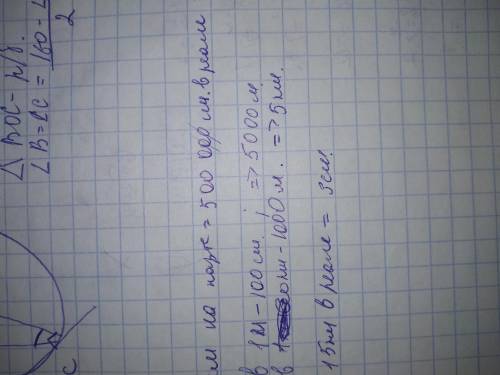 △ BOC - р/б.
∠B = ∠C = 180 - ∠
2
C
м на карте = 500 000 см. в реале
в 1м - 100 см. ; => 5000 м
в км - 1000 м. => 5 км.
15 км в реале = 3 см.